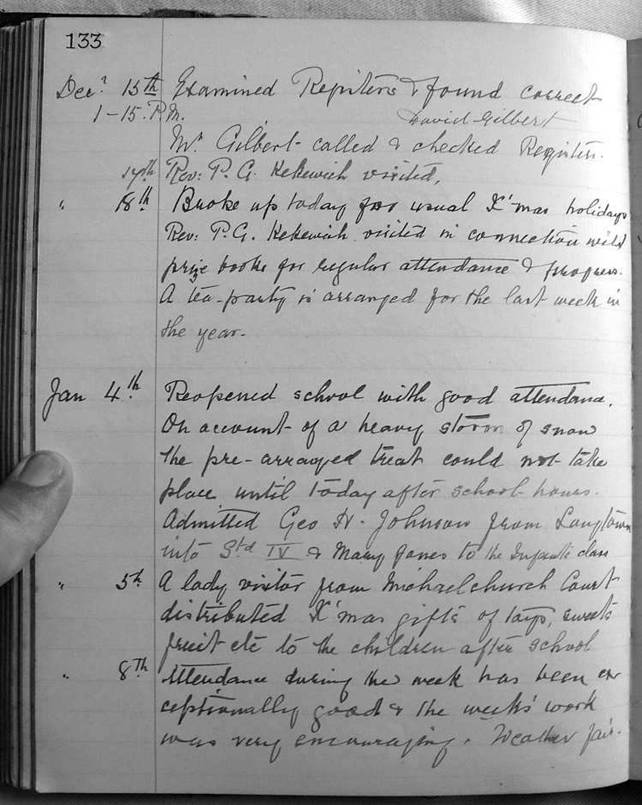 133
Decr 15th Examined Registers & found correct
1-15. P.M. David Gilbert
Mr Gilbert called & checked Registers.
17th Rev: P. G. Kekewich visited.
" 18th Broke up today for usual X'mas holidays
Rev: P. G. Kekewich visited in connection with
prize books for regular attendance & progress.
A tea-party is arranged for the last week in
the year.
Jan 4th Reopened school with good attendance.
On account of a heavy storm of snow
the pre-arranged treat could not take
place until today after school hours.
Admitted Geo H. Johnson from Longtown
into Std IV & Mary Jones to the Infants class
" 5th A lady visitor from Michaelchurch Court
distributed X'mas gifts of toys, sweets
fruit etc to the children after school
" 8th Attendance during the week has been ex
ceptionally good & the weeks' work
was very encouraging. Weather fair.